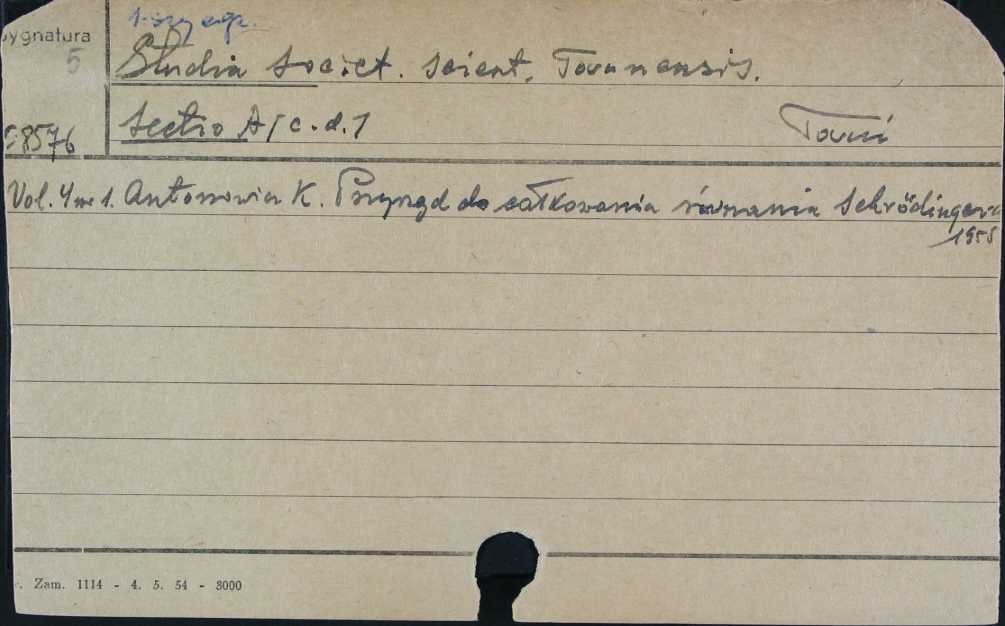 1-szy egz.
Sygnatura
5
Studia Societ. Scient. Torunensis.
Sectio A / c.d. 1
Toruń
8576
Vol. 4 nr 1. Antonowicz K. Przyrząd do całkowania równania Schrödingera
1955
Zam. 1114 - 4. 5. 54 - 3000